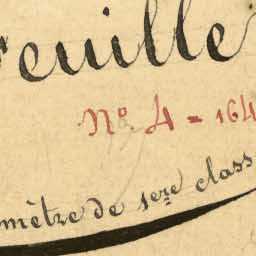 euille
Nº. 4 = 164
mètre de 1ere class